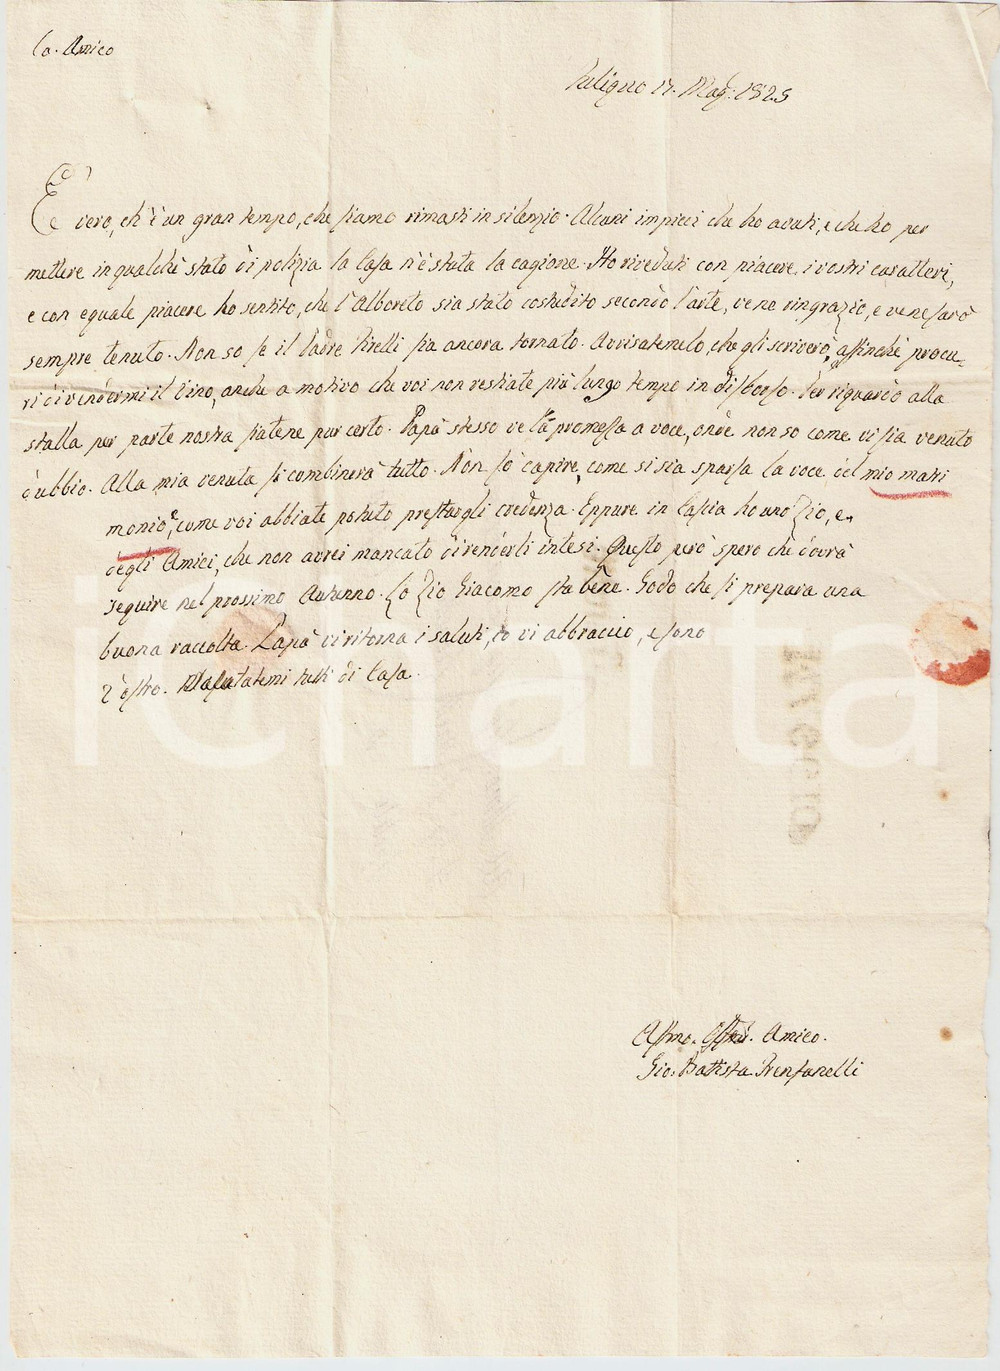 Ca. Amico
Fuligno 17. Mag. 1825
È vero, ch'è un gran tempo, che siamo rimasti in silenzio. Alcuni impicci che ho avuti, e che ho per
mettere in qualche stato di polizia la Casa n'è stata la cagione. Ho riveduti con piacere i vostri caratteri,
e con eguale piacere ho sentito, che l'Alboreto sia stato costudito secondo l'arte, ve ne ringrazio, e ve ne sarò
sempre tenuto. Non so se il Padre Pirelli sia ancora tornato. Avvisatemelo, che gli scriverò, affinchè procu-
ri di vendermi il Vino, anche a motivo che voi non restiate più lungo tempo in disborso. Per riguardo alla
stalla per parte nostra siatene pur certo. Papà stesso ve l'ha promessa a voce, onde non so come vi sia venuto
dubbio. Alla mia venuta si combinerà tutto. Non so capire, come si sia sparsa la voce del mio matri
monio, e come voi abbiate potuto prestargli credenza. Eppure in Cascia ho uno Zio, e
degli Amici, che non avrei mancato di renderli intesi. Questo però spero che dovrà
seguire nel prossimo Autunno. Lo Zio Giacomo sta bene. Godo che si prepara una
buona raccolta. Papà vi ritorna i saluti, io vi abbraccio, e sono
Vostro. Salutatemi tutti di Casa.
Affmo. Amico.
Gio. Battista Prenfanelli
iCharta